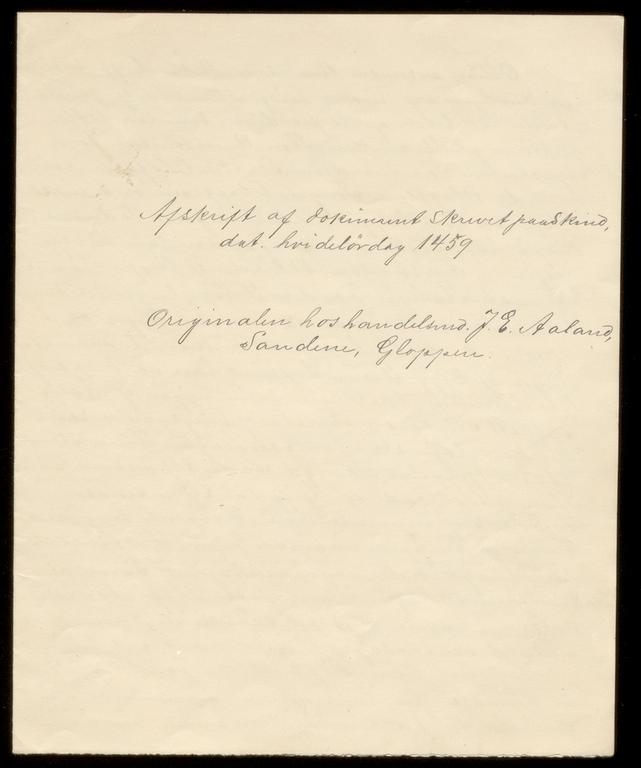 Afskrift af dokiment skrevet paa Skind,
dat. hvidelørdag 1459
Originalen hos handelsmd. J. E. Aaland,
Sandene, Gloppen.